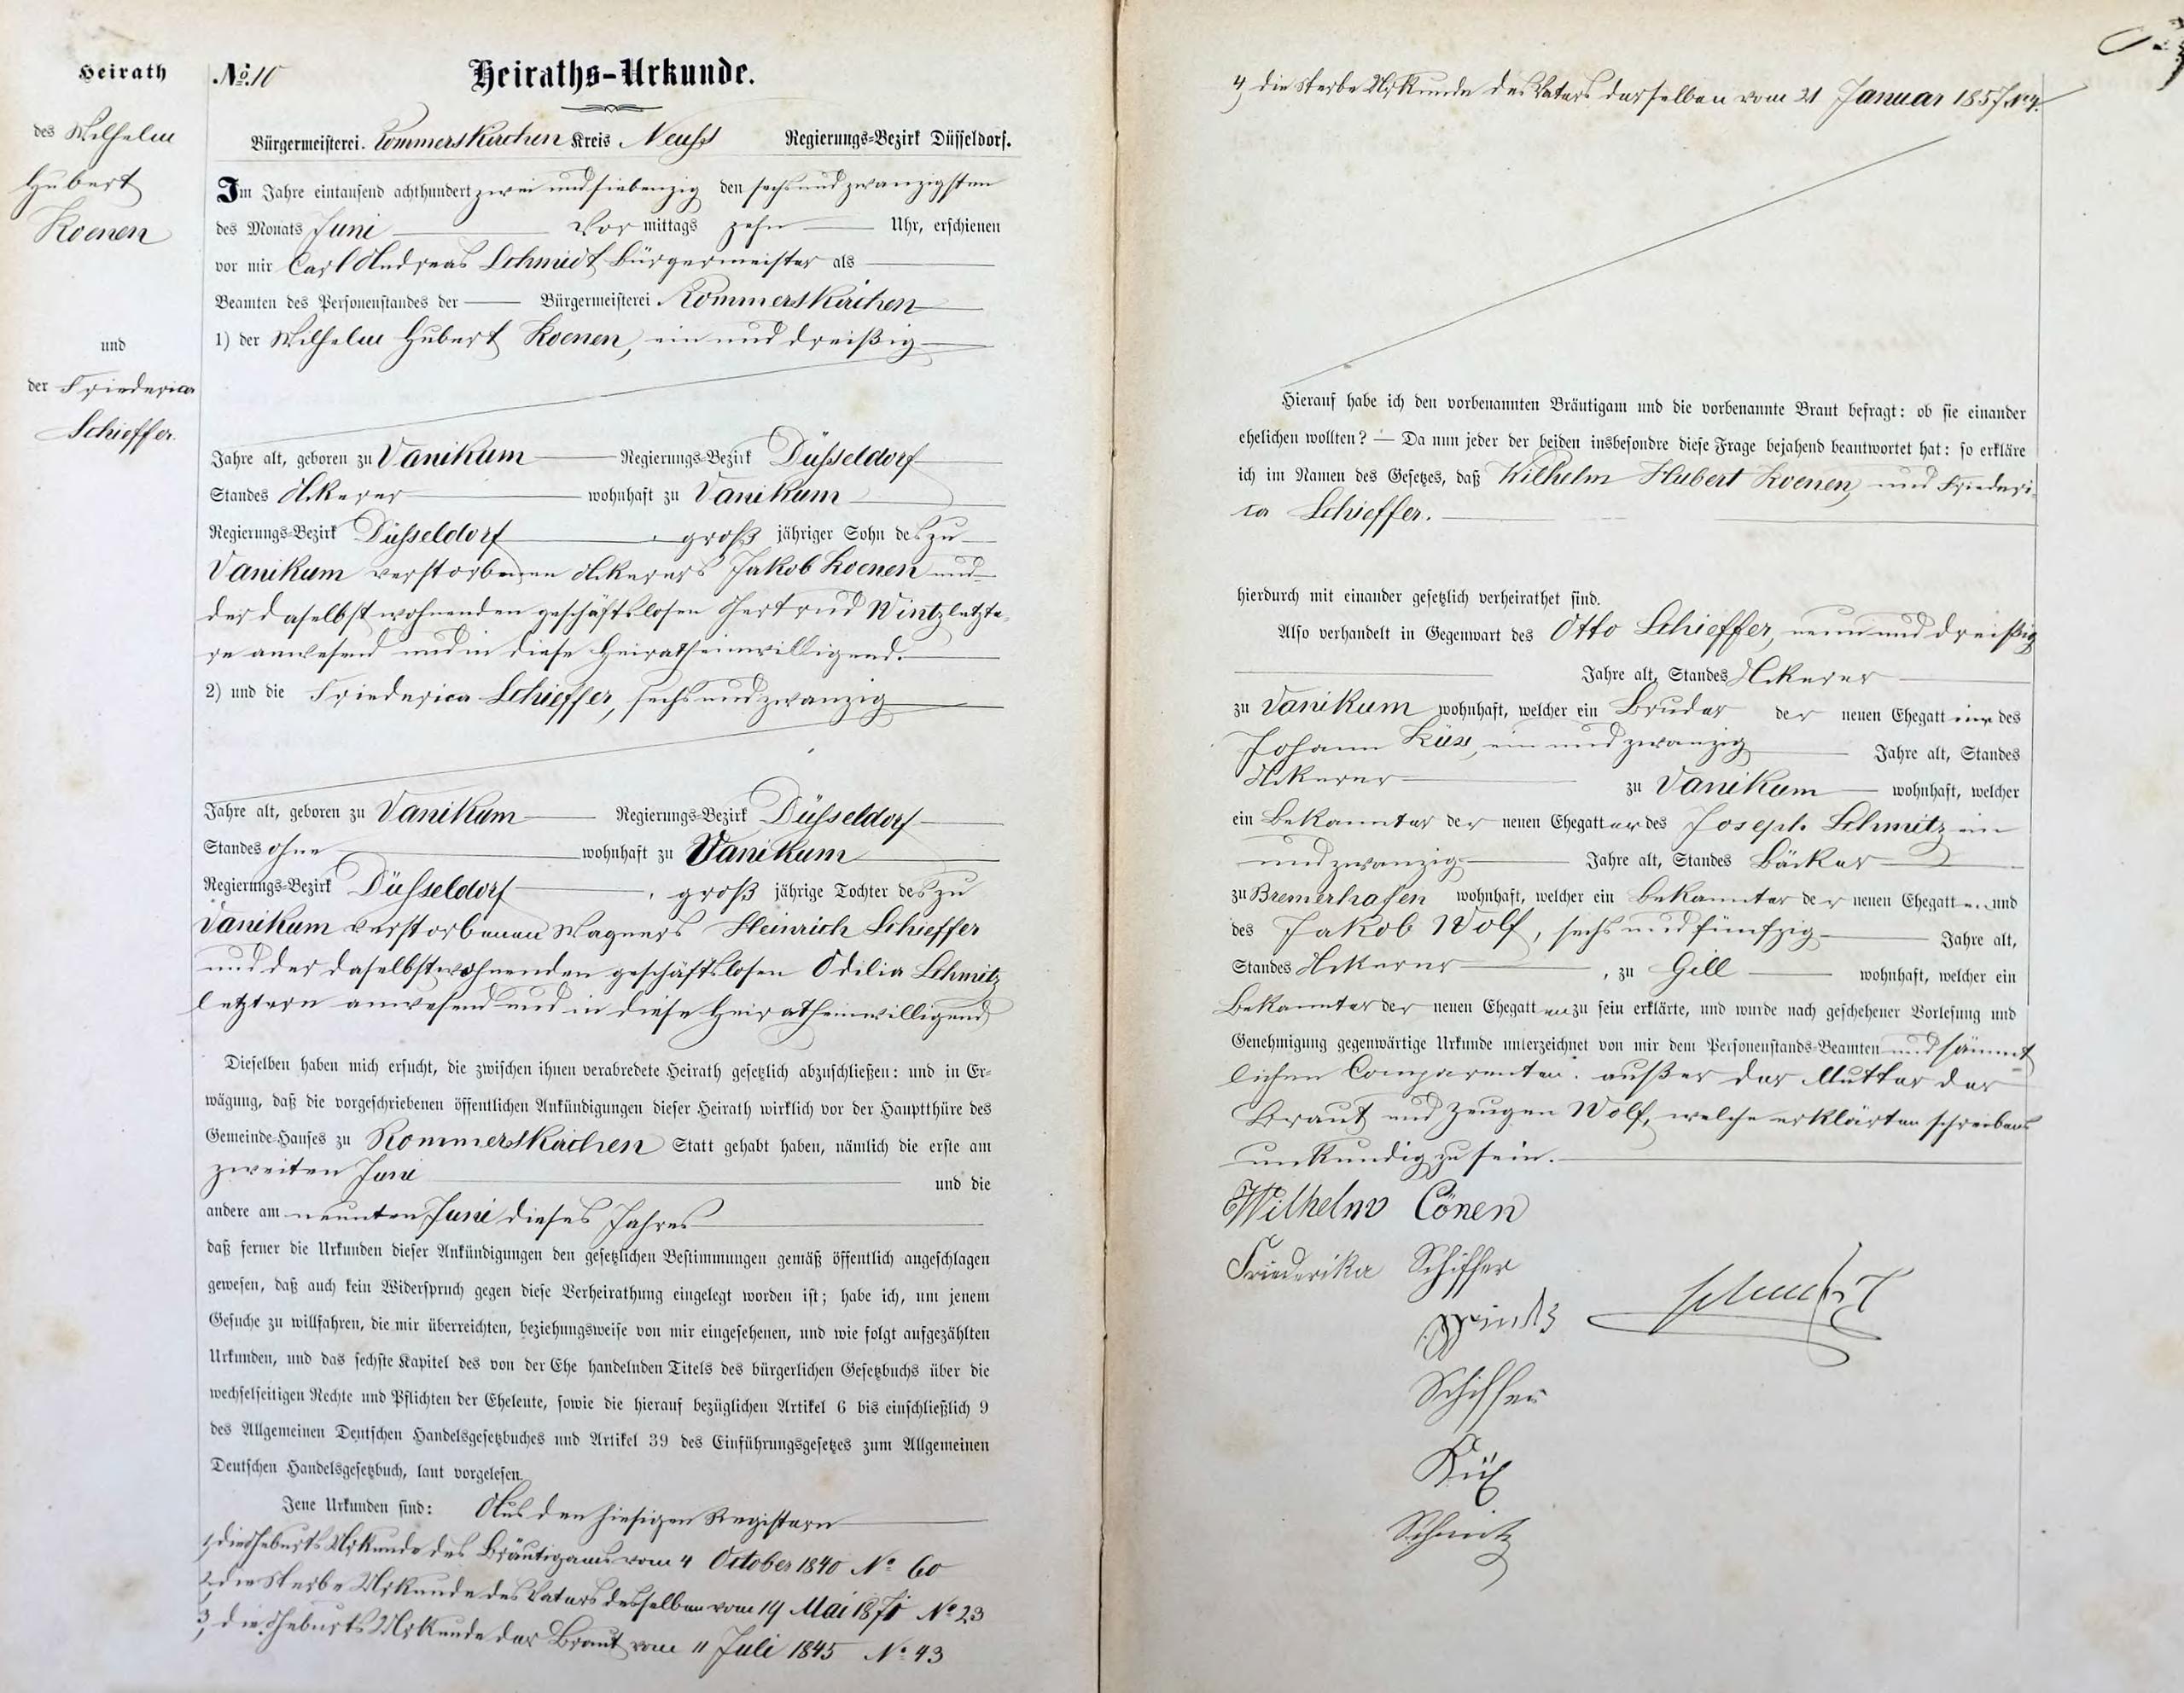 Heirath
des Wilhelm
Hubert
Koenen
und
der Friederica
Schieffer.
No. 10
Heiraths-Urkunde.
Bürgermeisterei. Rommerskirchen Kreis Neuss Regierungs-Bezirk Düsseldorf.
Im Jahre eintausend achthundert zwei und siebenzig den sechs und zwanzigsten
des Monats Juni Vor mittags zehn Uhr, erschienen
vor mir Carl Andreas Schmidt Bürgermeister als
Beamten des Personenstandes der Bürgermeisterei Rommerskirchen
1) der Wilhelm Hubert Koenen, ein und dreißig
Jahre alt, geboren zu Vanikum Regierungs-Bezirk Düsseldorf
Standes Ackerer wohnhaft zu Vanikum
Regierungs-Bezirk Düsseldorf , groß jähriger Sohn des zu
Vanikum verstorbenen Ackerers Jakob Koenen und
der daselbst wohnenden geschäftslosen Gertrud Wintz letzte-
re anwesend und in diese Heirath einwilligend.
2) und die Friederica Schieffer, sechs und zwanzig
Jahre alt, geboren zu Vanikum Regierungs-Bezirk Düsseldorf
Standes ohne wohnhaft zu Vanikum
Regierungs-Bezirk Düsseldorf , groß jährige Tochter des zu
Vanikum verstorbenen Wagners Heinrich Schieffer
und der daselbst wohnenden geschäftslosen Odilia Schmitz
letztere anwesend und in diese Heirath einwilligend
Dieselben haben mich ersucht, die zwischen ihnen verabredete Heirath gesetzlich abzuschließen: und in Er-
wägung, daß die vorgeschriebenen öffentlichen Ankündigungen dieser Heirath wirklich vor der Hauptthüre des
Gemeinde-Hauses zu Rommerskirchen Statt gehabt haben, nämlich die erste am
zweiten Juni und die
andere am neunten Juni dieses Jahres
daß ferner die Urkunden dieser Ankündigungen den gesetzlichen Bestimmungen gemäß öffentlich angeschlagen
gewesen, daß auch kein Widerspruch gegen diese Verheirathung eingelegt worden ist; habe ich, um jenem
Gesuche zu willfahren, die mir überreichten, beziehungsweise von mir eingesehenen, und wie folgt aufgezählten
Urkunden, und das sechste Kapitel des von der Ehe handelnden Titels des bürgerlichen Gesetzbuchs über die
wechselseitigen Rechte und Pflichten der Eheleute, sowie die hierauf bezüglichen Artikel 6 bis einschließlich 9
des Allgemeinen Deutschen Handelsgesetzbuches und Artikel 39 des Einführungsgesetzes zum Allgemeinen
Deutschen Handelsgesetzbuch, laut vorgelesen.
Jene Urkunden sind: Aus den hiesigen Registern
1, die Geburts Urkunde des Bräutigams vom 4 October 1840 No 60
2, die Sterbe Urkunde des Vaters desselben vom 14 Mai 1871 No 23
3, die Geburts Urkunde der Braut vom 11 Juli 1845 No 43
4, die Sterbe Urkunde des Vaters derselben vom 21 Januar 1857
Hierauf habe ich den vorbenannten Bräutigam und die vorbenannte Braut befragt: ob sie einander
ehelichen wollten? — Da nun jeder der beiden insbesondre diese Frage bejahend beantwortet hat: so erkläre
ich im Namen des Gesetzes, daß Wilhelm Hubert Koenen, und Friederi-
ca Schieffer.
hierdurch mit einander gesetzlich verheirathet sind.
Also verhandelt in Gegenwart des Otto Schieffer, neun und dreißig
Jahre alt, Standes Ackerer
zu Vanikum wohnhaft, welcher ein Bruder der neuen Ehegattin des
Johann Küx, ein und zwanzig Jahre alt, Standes
Ackerer zu Vanikum wohnhaft, welcher
ein Bekannter der neuen Ehegatten des Joseph Schmitz ein
und zwanzig Jahre alt, Standes Bäcker
zu Bremerhafen wohnhaft, welcher ein Bekannter der neuen Ehegatten und
des Jakob Wolf, sechs und fünfzig Jahre alt,
Standes Ackerer , zu Gill wohnhaft, welcher ein
Bekannter der neuen Ehegatten zu sein erklärte, und wurde nach geschehener Vorlesung und
Genehmigung gegenwärtige Urkunde unterzeichnet von mir dem Personenstands-Beamten und sämmt
lichen Comparenten. außer der Mutter der
Braut und Zeugen Wolf, welche erklärten schreibens
unkundig zu sein.
Wilhelm Cönen
Friederika Schiffer
Schmidt
Schiffer
Küx
Schmitz